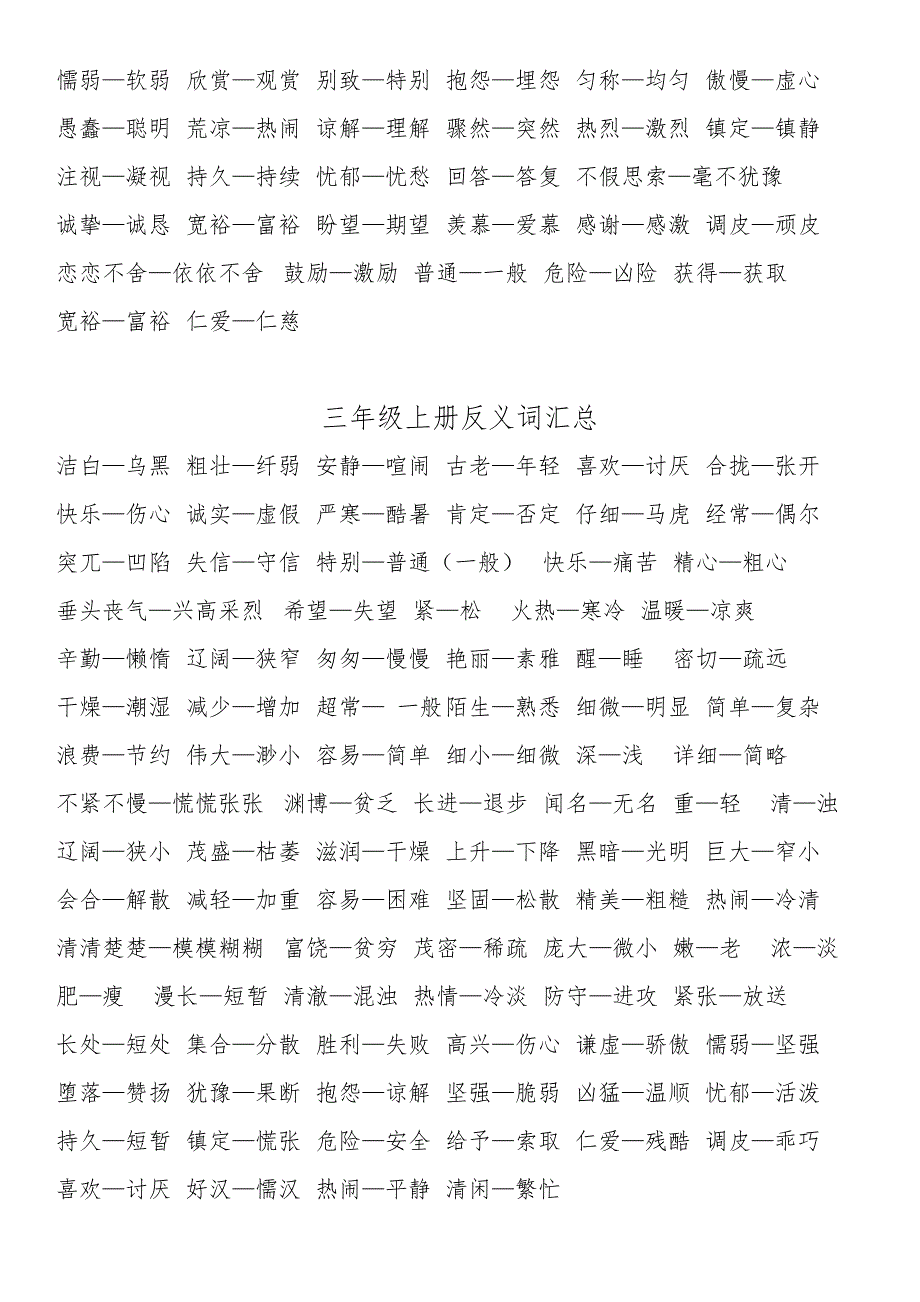 懦弱—软弱 欣赏—观赏 别致—特别 抱怨—埋怨 匀称—均匀 傲慢—虚心
愚蠢—聪明 荒凉—热闹 谅解—理解 骤然—突然 热烈—激烈 镇定—镇静
注视—凝视 持久—持续 忧郁—忧愁 回答—答复 不假思索—毫不犹豫
诚挚—诚恳 宽裕—富裕 盼望—期望 羡慕—爱慕 感谢—感激 调皮—顽皮
恋恋不舍—依依不舍 鼓励—激励 普通—一般 危险—凶险 获得—获取
宽裕—富裕 仁爱—仁慈
三年级上册反义词汇总
洁白—乌黑 粗壮—纤弱 安静—喧闹 古老—年轻 喜欢—讨厌 合拢—张开
快乐—伤心 诚实—虚假 严寒—酷暑 肯定—否定 仔细—马虎 经常—偶尔
突兀—凹陷 失信—守信 特别—普通（一般） 快乐—痛苦 精心—粗心
垂头丧气—兴高采烈 希望—失望 紧—松 火热—寒冷 温暖—凉爽
辛勤—懒惰 辽阔—狭窄 匆匆—慢慢 艳丽—素雅 醒—睡 密切—疏远
干燥—潮湿 减少—增加 超常— 一般 陌生—熟悉 细微—明显 简单—复杂
浪费—节约 伟大—渺小 容易—简单 细小—细微 深—浅 详细—简略
不紧不慢—慌慌张张 渊博—贫乏 长进—退步 闻名—无名 重—轻 清—浊
辽阔—狭小 茂盛—枯萎 滋润—干燥 上升—下降 黑暗—光明 巨大—窄小
会合—解散 减轻—加重 容易—困难 坚固—松散 精美—粗糙 热闹—冷清
清清楚楚—模模糊糊 富饶—贫穷 茂密—稀疏 庞大—微小 嫩—老 浓—淡
肥—瘦 漫长—短暂 清澈—混浊 热情—冷淡 防守—进攻 紧张—放送
长处—短处 集合—分散 胜利—失败 高兴—伤心 谦虚—骄傲 懦弱—坚强
堕落—赞扬 犹豫—果断 抱怨—谅解 坚强—脆弱 凶猛—温顺 忧郁—活泼
持久—短暂 镇定—慌张 危险—安全 给予—索取 仁爱—残酷 调皮—乖巧
喜欢—讨厌 好汉—懦汉 热闹—平静 清闲—繁忙